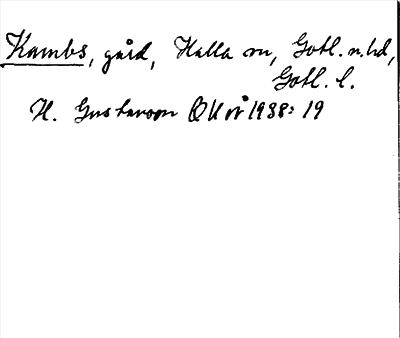 Kambs, gård, Halla sn, Gotl. n. hd,
Gotl. l.
H. Gustavson 1938: 19